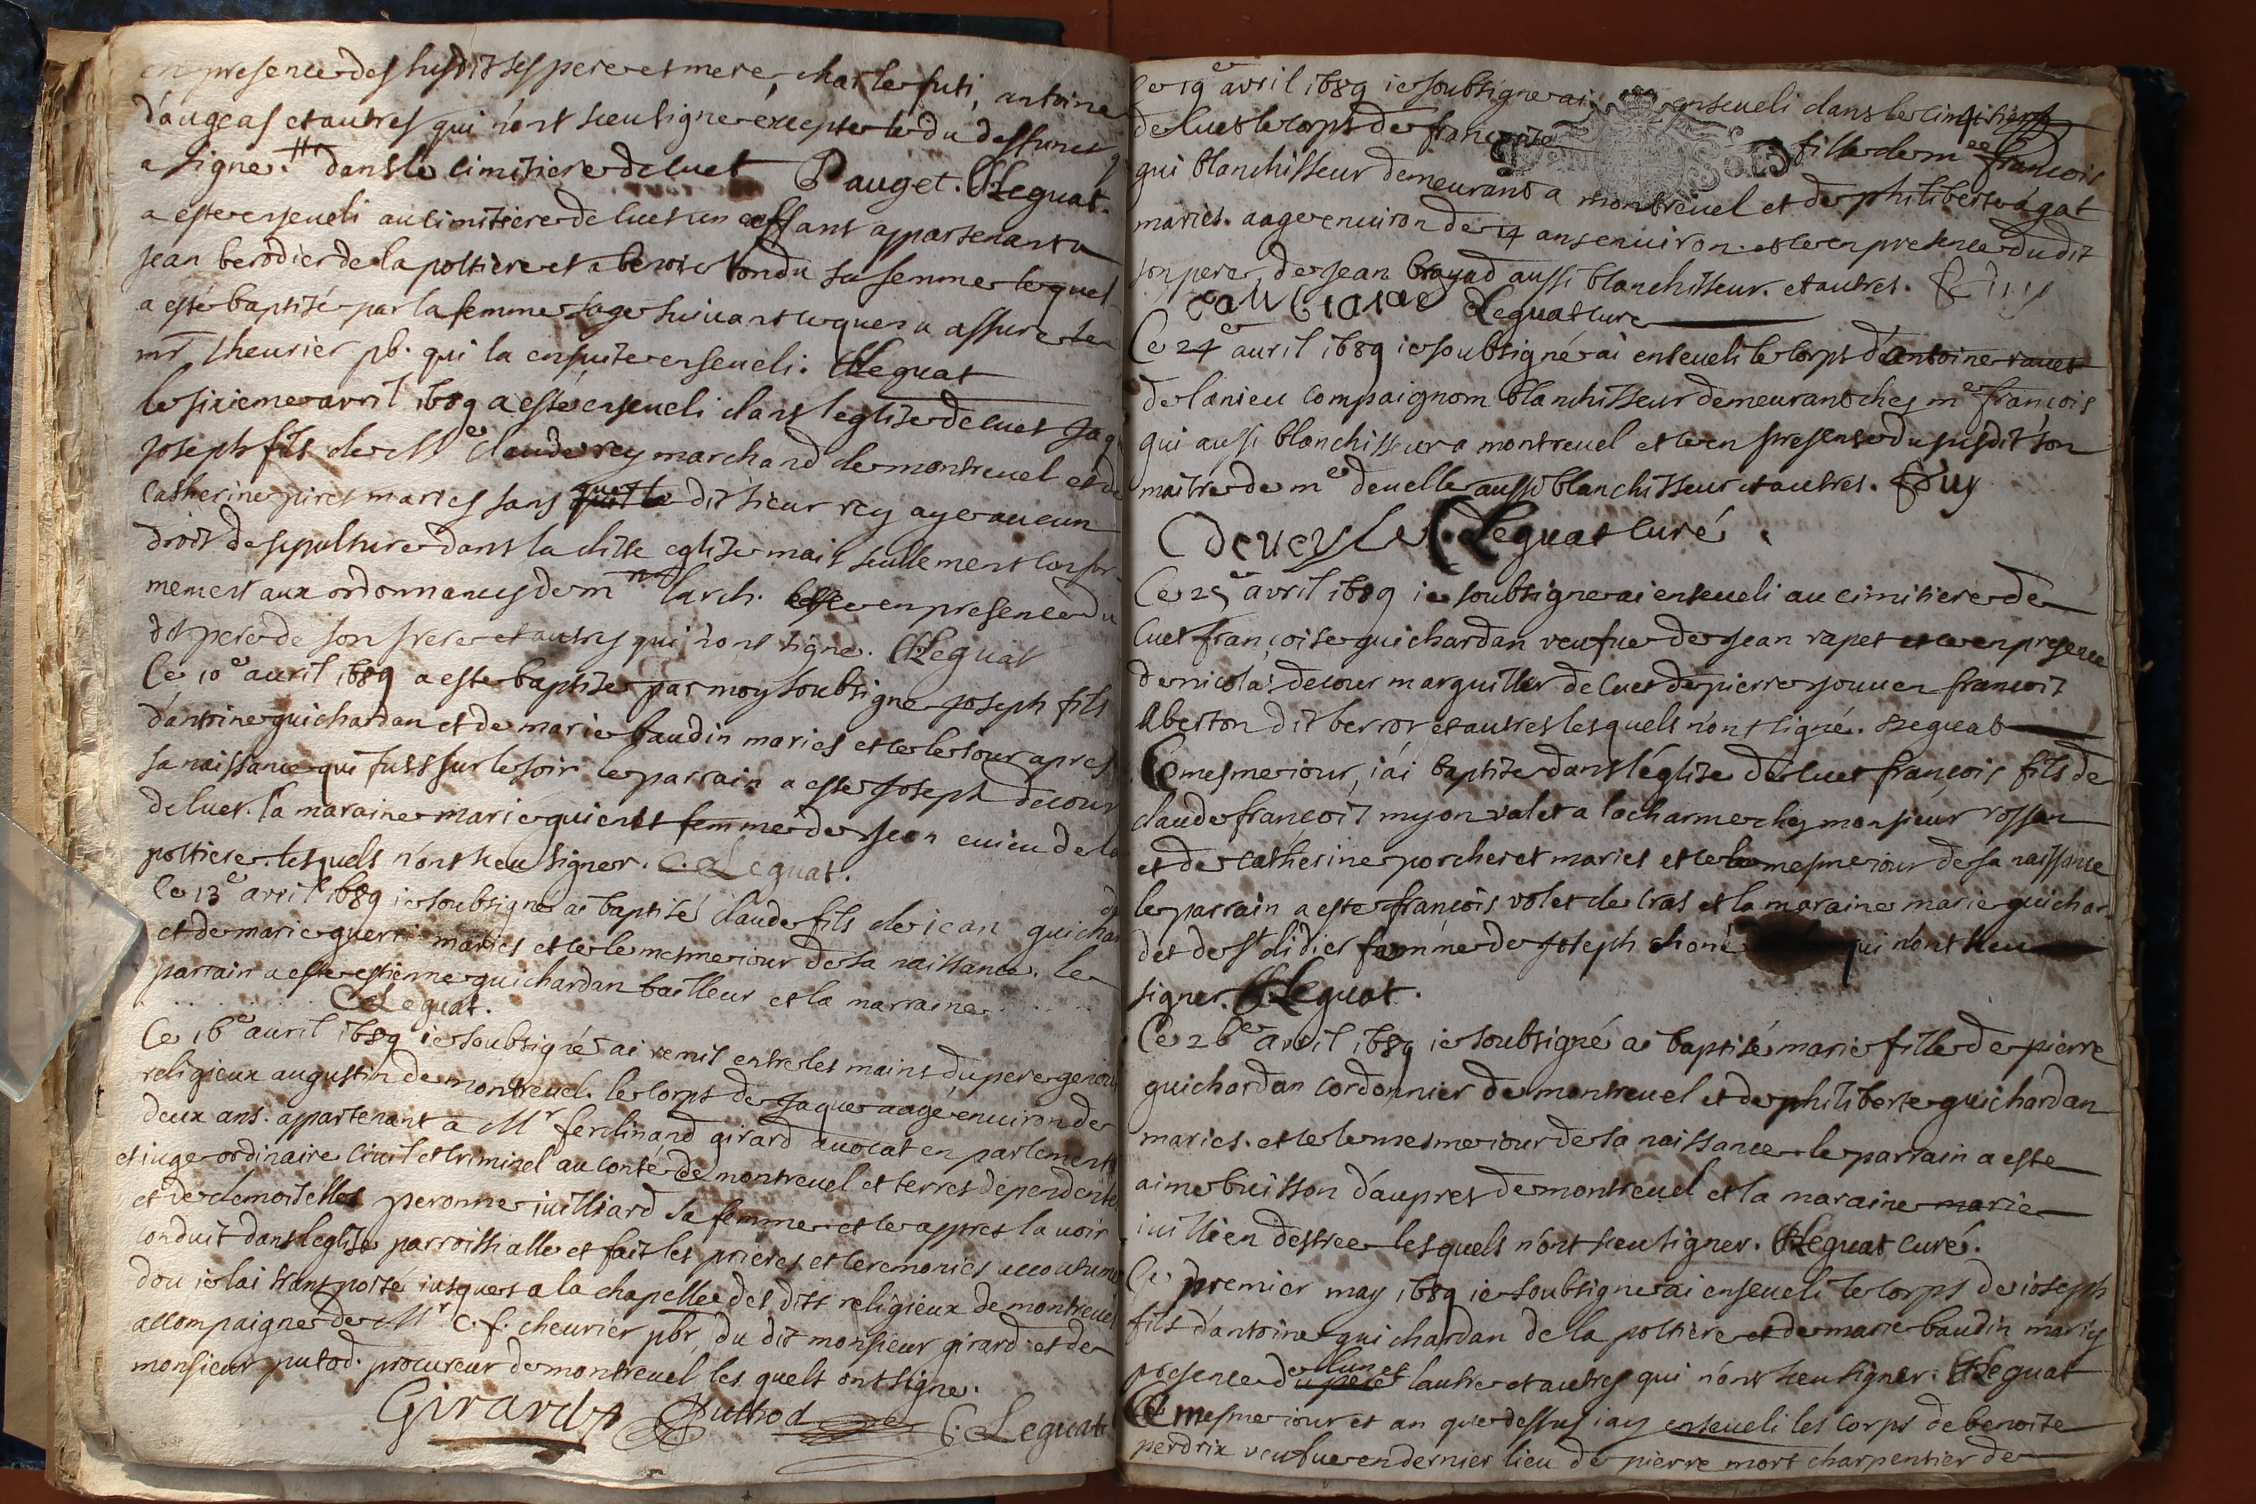 en presence des susdits ses pere et mere, charle futi, antoine
d'augeas et autres qui n'ont sceu signe excepte le du deffunct
a signe. dans le cimitiere de cuet Pauget. CLeguat.
a este enseveli au cimitiere de cuet un enffant appartenant a
jean berodier de la poltiere et a benoite tondu sa femme lequel
a esté baptisé par la femme sage suivant ce quen a assure le
mr. cheurier pb. qui la ensuite enseveli. CLeguat
le sixieme avril 1689 a esté enseveli dans leglise de cuet Jaq
joseph fils de Me claude rey marchand de montrevel et de
catherine piret maries sans que le dit sieur rey aye aucun
droit de sepulture dans la ditte eglise mais seullement confor-
mement aux ordonnances de m larch. et ce en presence du
dt pere de son frere et autres qui n'ont signe. CLeguat
Ce 10e avril 1689 a este baptise par moy soubsigne joseph fils
d'antoine guichardan et de marie baudin maries et ce le iour apres
sa naissance qui fust sur le soir le parrain a este Joseph decour
de cuet. la maraine marie femme de jean cuieu de la
poltiere. lesquels n'ont sceu signer. C. Leguat.
Ce 13e avril 1689 ie soubsigne ai baptisé claude fils de iean guichar
et de marie guerri maries et ce le mesme iour de sa naissance. le
parrain a este estienne guichardan bailleur et la marraine . . . .
. . . . . . . CLeguat.
Ce 16e avril 1689 ie soubsigné ai remis entre les mains du pere genou
religieux augustin de montrevel. le corps de Jaque aagé environ de
deux ans. appartenant a Mr ferdinand girard avocat en parlement
et iuge ordinaire civil et criminel au conté de montrevel et terres dependente
et de demoiselle peronne iuilliard sa femme et ce appres lavoir
conduit dans leglise parroissialle et fait les prieres et ceremonies accoutume
dou ie lai transporté iusques a la chapelle des dits religieux de montrevel
accompaigne de Mr C. f. cheurier pbr, du dit monsieur girard et de
monsieur putod. procureur de montrevel les quels ont signe.
Girard Puthod C. Leguat.
Ce 19e avril 1689 ie soubsigne ai enseveli dans le cimitiere
de cuet le corps de françoise fille de me françois
qui blanchisseur demeurant a montrevel et de philiberte agat
maries. aage environ de 14 ans environ. et ce en presence du dit
son pere, de jean brayad aussi blanchisseur. et autres.
Leguat cure
Ce 24e avril 1689 ie soubsigné ai enseveli le corps d'antoine ravet
de lanieu compaignom blanchisseur demeurant ches me françois
qui aussi blanchisseur a montrevel et ce en presence du susdit son
maitre de me develle aussi blanchisseur et autres. Fquy
Devevle CLeguat curé.
Ce 25e avril 1689 ie soubsigne ai enseveli au cimitiere de
cuet françoise guichardan veufve de jean rapet et ce en presence
de nicolas decour marguiller de cuet de pierre jouven françois
Aberton dit berrot et autres lesquels n'ont signé. Leguat
Ce mesme iour, i'ai baptize dans l'église de cuet françois fils de
claude françois myon valet a la charme chez monsieur rossan
et de catherine porcheret maries et ce le mesme iour de sa naissance
le parrain a este françois volet de cras et la maraine marie guichar-
det de st didier femme de Joseph chone qui n'ont sceu
signer. CLeguat.
Ce 26e avril 1689 ie soubsigné ai baptisé marie fille de pierre
guichardan cordonnier de montrevel et de philiberte guichardan
maries. et ce le mesme iour de sa naissance. le parrain a este
aime buisson d'aupres de montrevel et la maraine marie
iuillien destree lesquels n'ont sceu signer. CLeguat curé.
Ce premier may 1689 ie soubsigne ai enseveli le corps de ioseph
fils d'antoine guichardan de la poltiere et de marie baudin maries
presence de lun et lautre et autres qui n'ont sceu signer. CLeguat
Ce mesme iour et an que dessus iay enseveli les corps de benoite
perdrix veufve en dernier lieu de pierre mort charpentier de